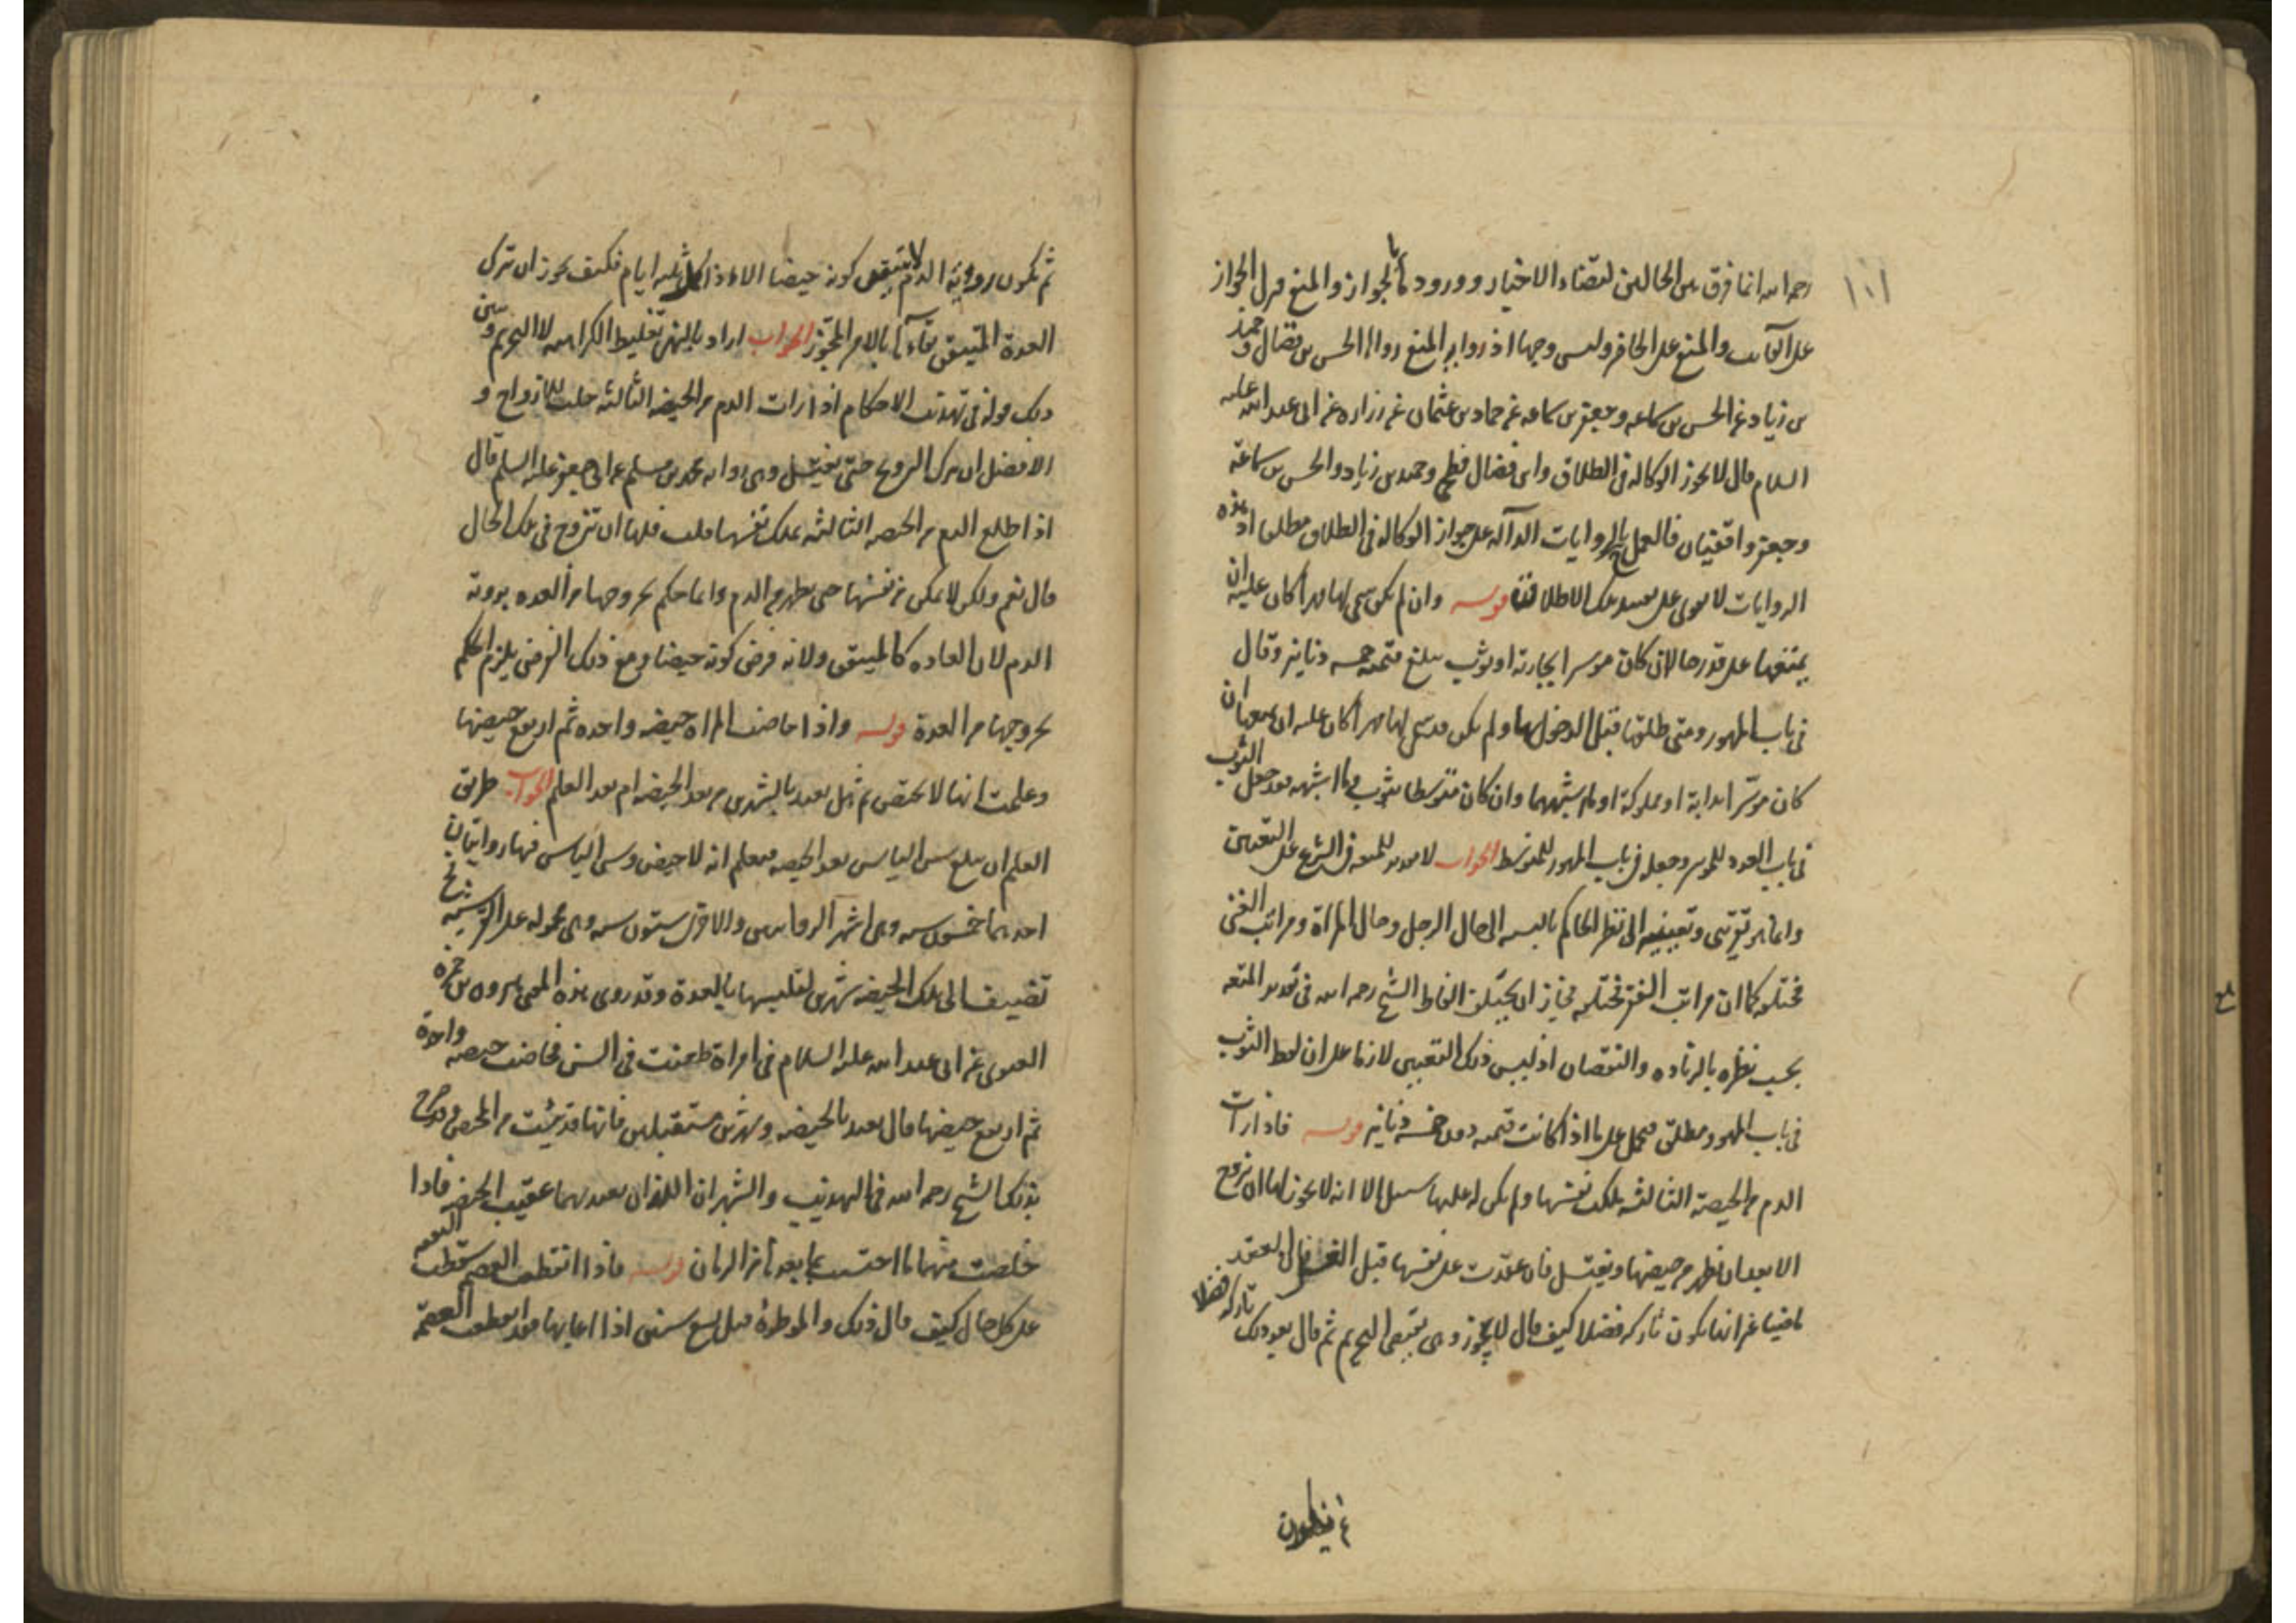 ١٠١
رحمه الله انما فرق بين الحالين لتضاد الاخبار وورود ها بالجواز والمنع فنزل الجواز
على الغائب والمنع على الحاضر وليس وجها اذ رواية المنع رواها الحسن بن فضال وحميد
بن زياد عن الحسن بن سماعه وجعفر بن سماعه عن حماد بن عثمان عن زراره عن ابي عبد الله عليه
السلام قال لا يجوز الوكالة في الطلاق وابن فضال فطحي وحميد بن زياد والحسن بن سماعة
وجعفر واقفيان فالعمل بالروايات الدالة على جواز الوكالة في الطلاق مطلقا اذ هذه
الروايات لا تقوى على تقييد تلك الاطلاقات قوله وان لم يكن سمى لها مهرا كان عليه ان
يمتعها على قدر حاله ان كان موسرا بجارية او ثوب يبلغ قيمته خمسة دنانير وقال
في باب المهور ومتى طلقها قبل الدخول بها ولم يكن قد سمى لها مهرا كان عليه ان يمتعها ان
كان موسرا بدابة او مملوكة او ما اشبههما وان كان متوسطا بثوب وما اشبهه فقد جعل الثوب
في باب العدد للموسر وجعله في باب المهور للمتوسط الجواب لا تقدير للمتعه في الشرع على التعيين
وانما هو تقريبي وتعيينه الى نظر الحاكم بالنسبة الى حال الرجل وحال المراة ومراتب الغنى
مختلفه كما ان مراتب الفقر مختلفه فجاز ان يختلف الفاظ الشيخ رحمه الله في تقدير المتعه
بحسب نظره بالزياده والنقصان اذ ليس ذلك التعيين لازما على ان لفظ الثوب
في باب المهور مطلق فيحمل على ما اذا كانت قيمته دون خمسة دنانير قوله فاذا رات
الدم من الحيضة الثالثة ملكت نفسها ولم يكن له عليها سبيل الا انه لا يجوز لها ان تتزوج
الا بعد ان تطهر من حيضها وتغتسل فان عقدت على نفسها قبل الغسل كان العقد
ماضيا غير انها تكون تاركة فضلا كيف قال لا يجوز وهي تقتضي التحريم ثم قال بعد ذلك تاركة فضلا
ثم فيكون
ثم تكون رؤية الدم لا يتيقن كونه حيضا الا اذا كمل ثلثه ايام فكيف يجوز ان تترك
العدة المتيقن بقاؤها بالامر المجوز الجواب اراد بالنهي تغليظ الكراهيه لا التحريم وبين
ذلك قوله في تهذيب الاحكام اذا رات الدم من الحيضه الثالثه حلت للازواج و
الافضل ان تترك التزويج حتى تغتسل وهي رواية محمد بن مسلم عن ابي جعفر عليه السلم قال
اذا طلع الدم من الحيضه الثالثه تملك نفسها قلت فلها ان تتزوج في تلك الحال
قال نعم ولكن لا تمكن من نفسها حتى تطهر من الدم وانما حكم بخروجها من العده برؤية
الدم لان العاده كالمتيقن ولانه فرض كونه حيضا ومع ذلك الفرض يلزم الحكم
بخروجها من العدة قوله واذا حاضت المراه حيضه واحده ثم ارتفع حيضها
وعلمت انها لا تحيض ثم هل تعتد بالشهرين من بعد الحيضه ام بعد العلم الجواب طريق
العلم ان تبلغ سن الياس بعد الحيضه فيعلم انه لا حيض وسن الياس فيها روايتان
احدهما خمسون سنه وهي اشهر الروايتين والاخرى ستون سنه وهي محموله على القرشيه ثم
تضيف الى تلك الحيضه شهرين لتلبسها بالعدة وقد روى هذه المعنى هرون بن حمزه
الغنوي عن ابي عبد الله عليه السلام في امراة طعنت في السن فحاضت حيضه واحدة
ثم ارتفع حيضها قال تعتد بالحيضه وشهرين مستقبلين فانها قد يئست من المحيض وقد صرح
بذلك الشيخ رحمه الله في التهذيب والشهران اللذان تعتد بهما عقيب الحيضه فاذا
خلصت منهما ما احتسب بما بعدها من الزمان قوله فاذا انقطعت العصمه سقطت النفقه
على كل حال كيف قال ذلك والموطوءة قبل تسع سنين اذا اعابها فقد انقطعت العصمة